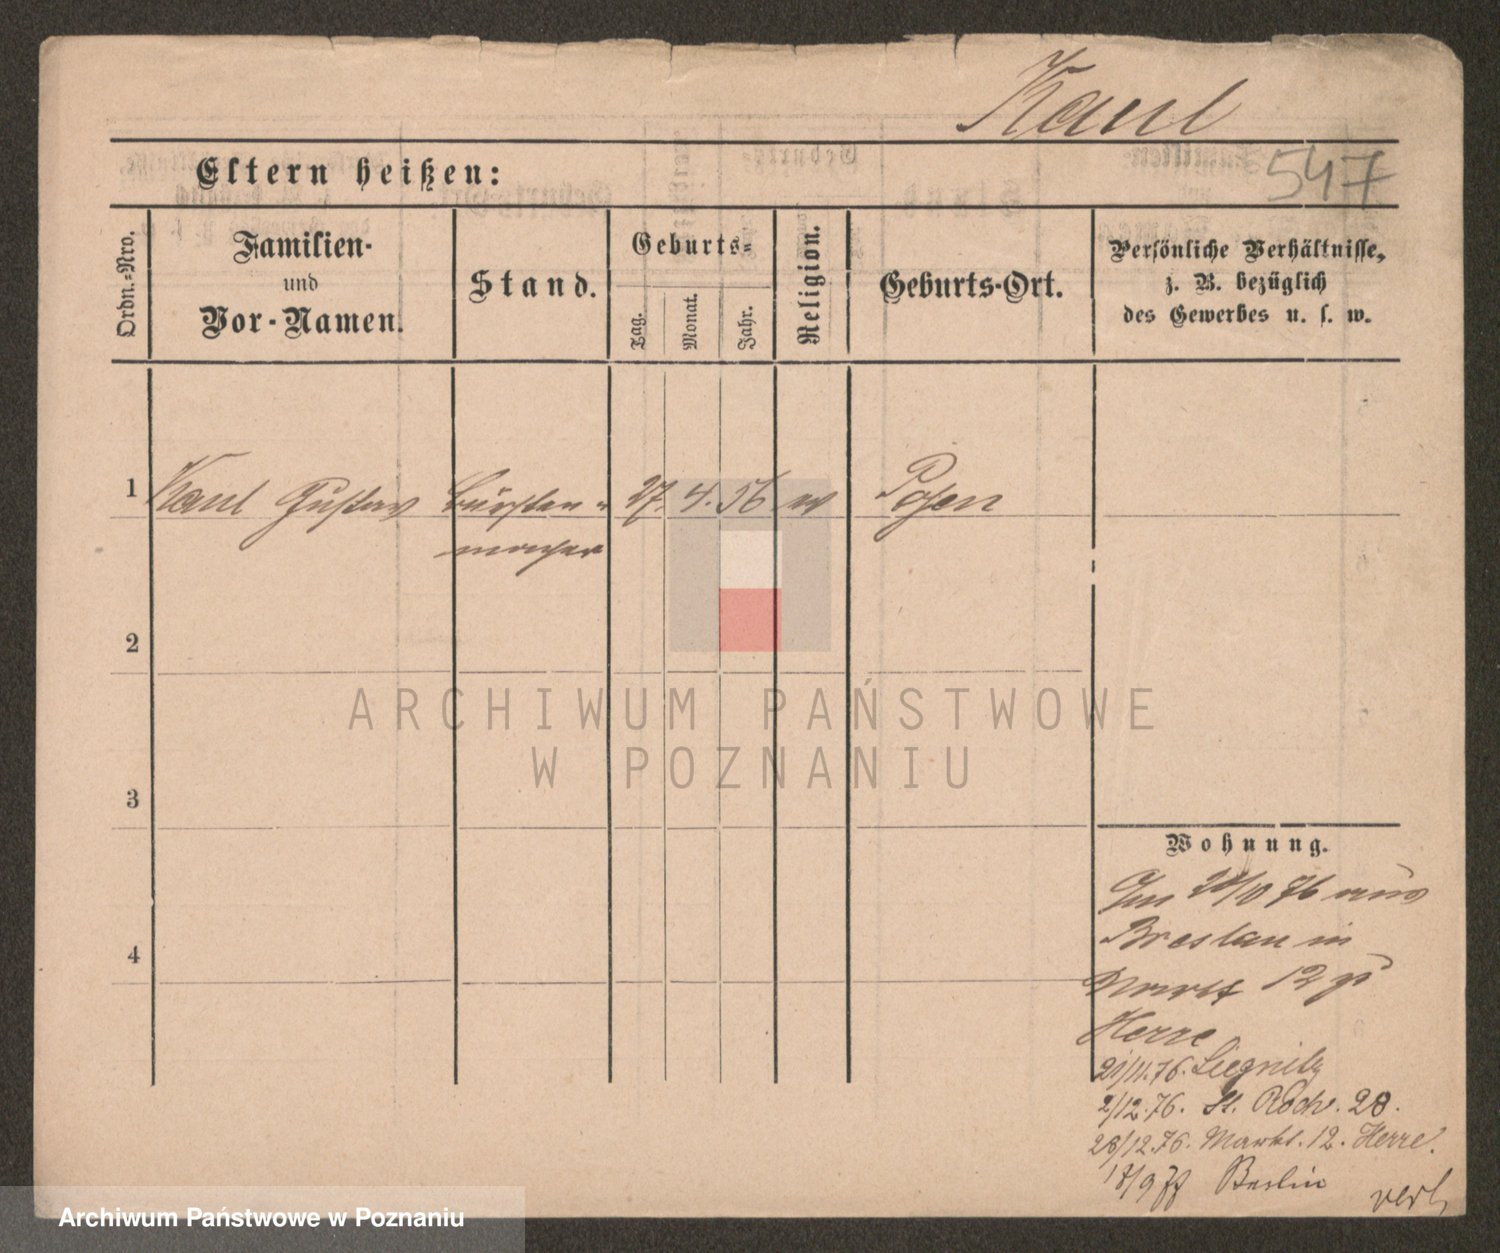 Kaul
Eltern heißen:
547
Ordn.-Nro.
Familien-
und
Vor-Namen.
Stand.
Geburts-
Tag.
Monat.
Jahr.
Religion.
Geburts-Ort.
Persönliche Verhältnisse,
z. B. bezüglich
des Gewerbes u. s. w.
1 Kaul Gustav Bürsten- 27. 4. 56 Posen
macher
2
3
4
ARCHIWUM PAŃSTWOWE
W POZNANIU
Wohnung.
76 aus
Breslau in
Markt 12
Herre
21/11.76. Liegnitz
2/12.76. St. Roch. 28.
28/12.76. Markt. 12. Herre.
18/9 77 Berlin
Archiwum Państwowe w Poznaniu